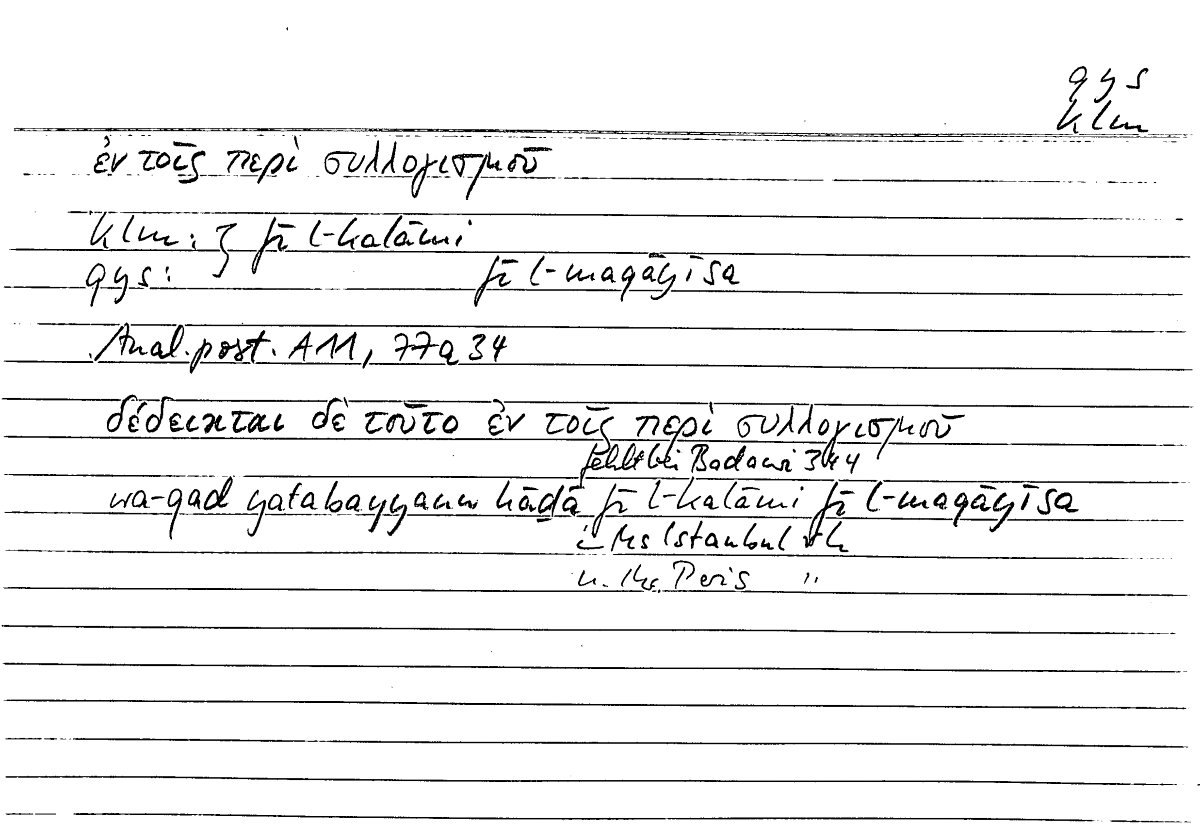 qys
klm
ἐν τοῖς περὶ συλλογισμοῦ
klm: } fī l-kalāmi
qys: fī l-maqāyīsa
Anal. post. A11, 77a34
δέδεικται δὲ τοῦτο ἐν τοῖς περὶ συλλογισμοῦ
fehlt bei Badawi 344
wa-qad yatabayyanu hāḏā fī l-kalāmi fī l-maqāyīsa
i Ms Istanbul vh
u. Ms. Paris "